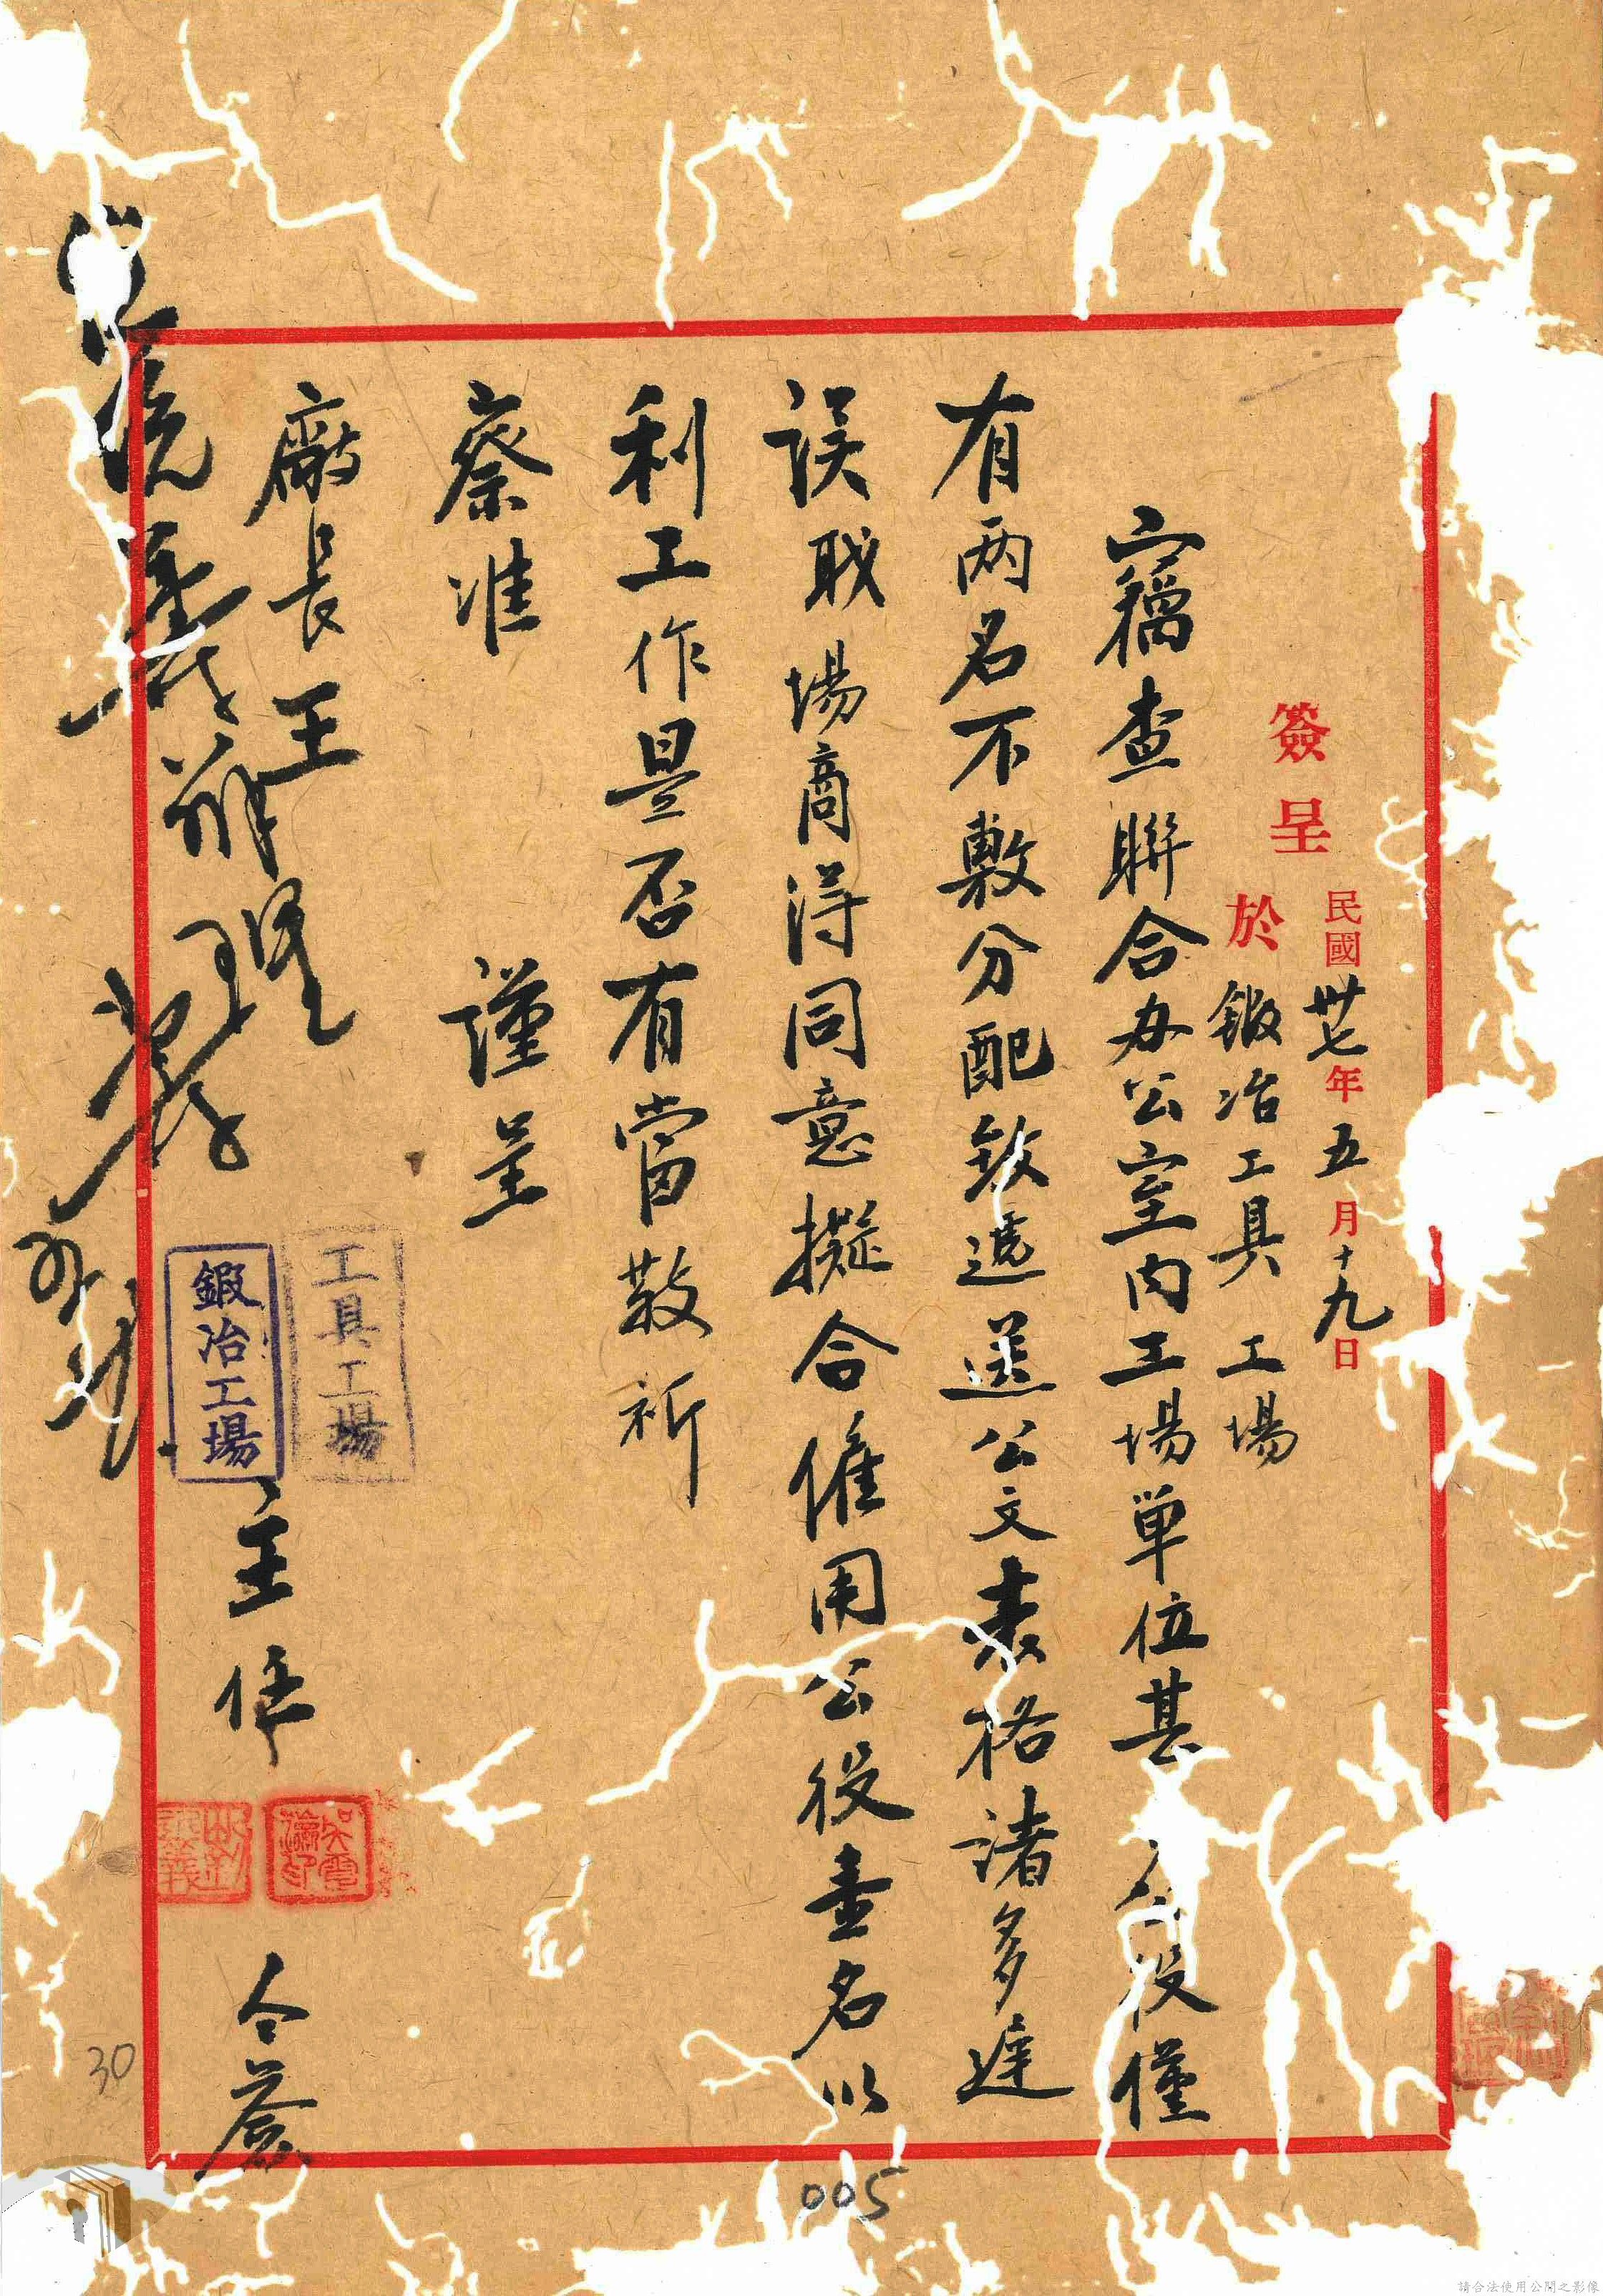 簽呈
民國卅七年五月十九日
於鍛冶工具工場
竊查聯合办公室内工場单位甚公役僅
有两名不敷分配致遞送公文表格諸多遲
误职場商淂同意擬合僱用公役壹名以
利工作是否有當敬祈
察准
謹呈
廠長王
工具工場
鍛冶工場
主任
仝蓋
30
005
請合法使用公開之影像